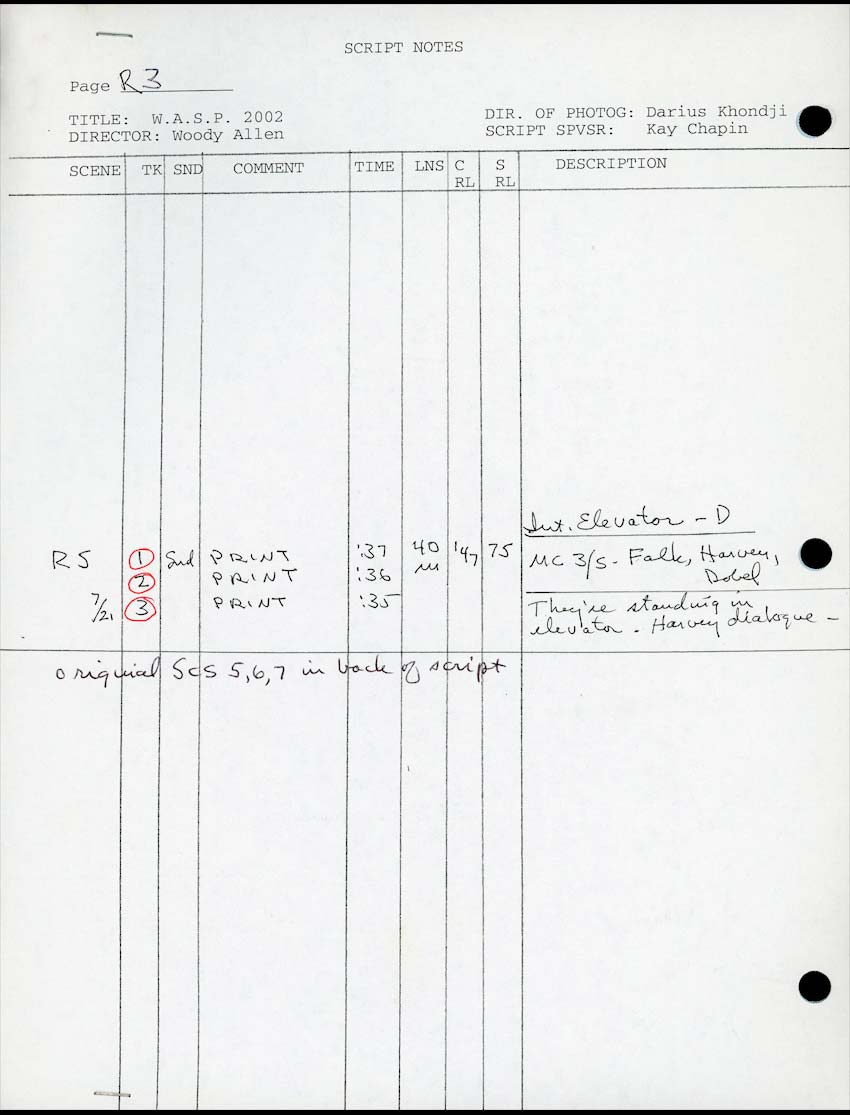 SCRIPT NOTES
Page R3
TITLE: W.A.S.P. 2002
DIR. OF PHOTOG: Darius Khondji
DIRECTOR: Woody Allen
SCRIPT SPVSR: Kay Chapin
SCENE TK SND COMMENT TIME LNS C RL S RL DESCRIPTION
Int. Elevator - D
R5 1 Snd PRINT :37 40 '47 75 MC 3/s - Falk, Harvey,
2 PRINT :36 m Dobel
7/21 3 PRINT :35 They're standing in
elevator - Harvey dialogue -
original Scs 5,6,7 in back of script